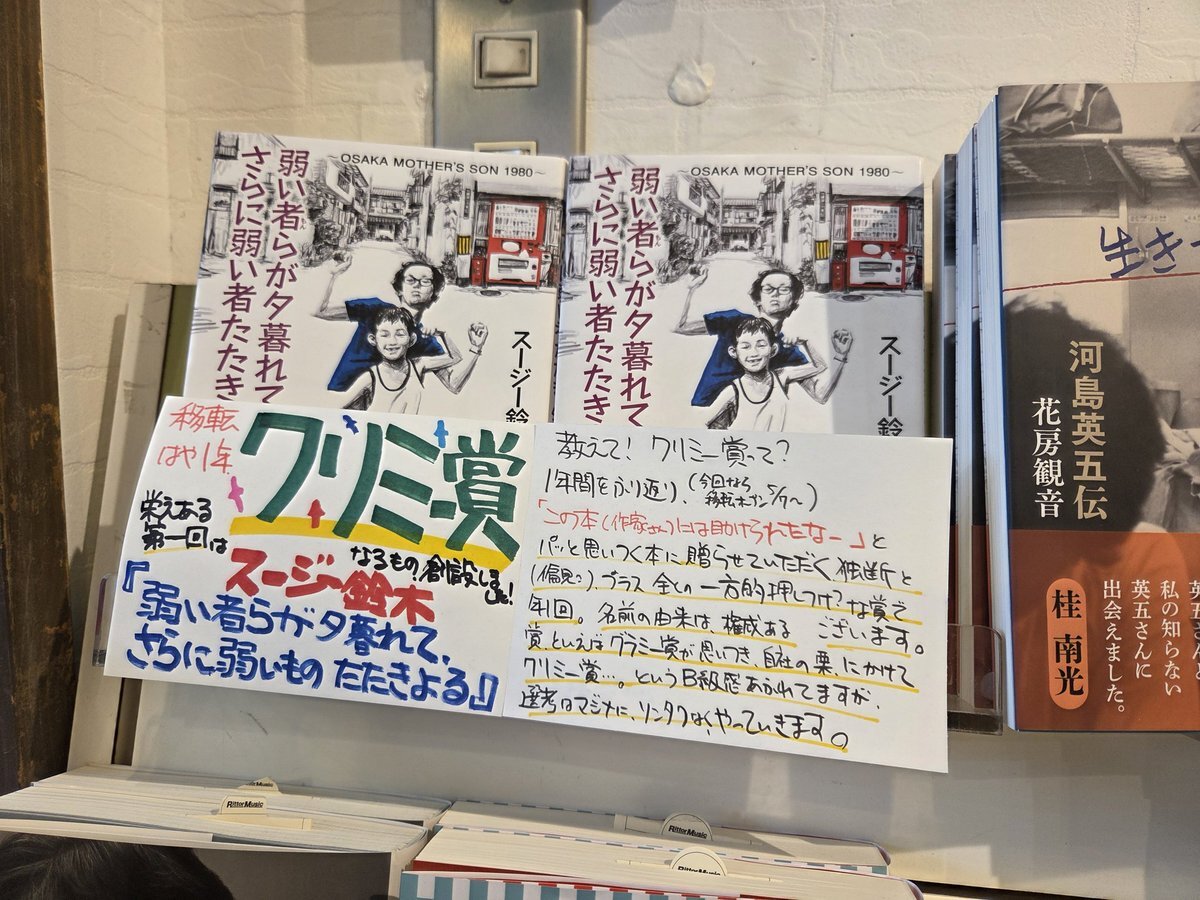 OSAKA MOTHER'S SON 1980~
弱い者らが夕暮れて
さらに弱い者たたき
スージー鈴
OSAKA MOTHER'S SON 1980~
弱い者らが夕暮れて
さらに弱い者たたき
スージー鈴
生き
河島英五伝
花房観音
桂 南光
私の知らない
英五さんに
出会えました。
移転
はや1年
クリミー賞
なるもの、創設しました!
栄えある
第一回は
スージー鈴木
『弱い者らが夕暮れて、
さらに弱いもの たたきよる』
教えて! クリミー賞って?
1年間をふり返り、(今回なら
移転オープン5/9~)
「この本(作家さん)には助けられたなー」と
パッと思いつく本に贈らせていただく、独断と
(偏見?)プラス 全くの一方的押しつけ?な賞で
年1回。 ございます。
名前の由来は、権威ある
賞といえばグラミー賞が思いつき、自社の栗、にかけて
クリミー賞…。というB級感あふれてますが、
選考はマジメに、リンタクなく、やっていきます。
RitterMusic
RitterMusic
RitterMusic
RitterMusic